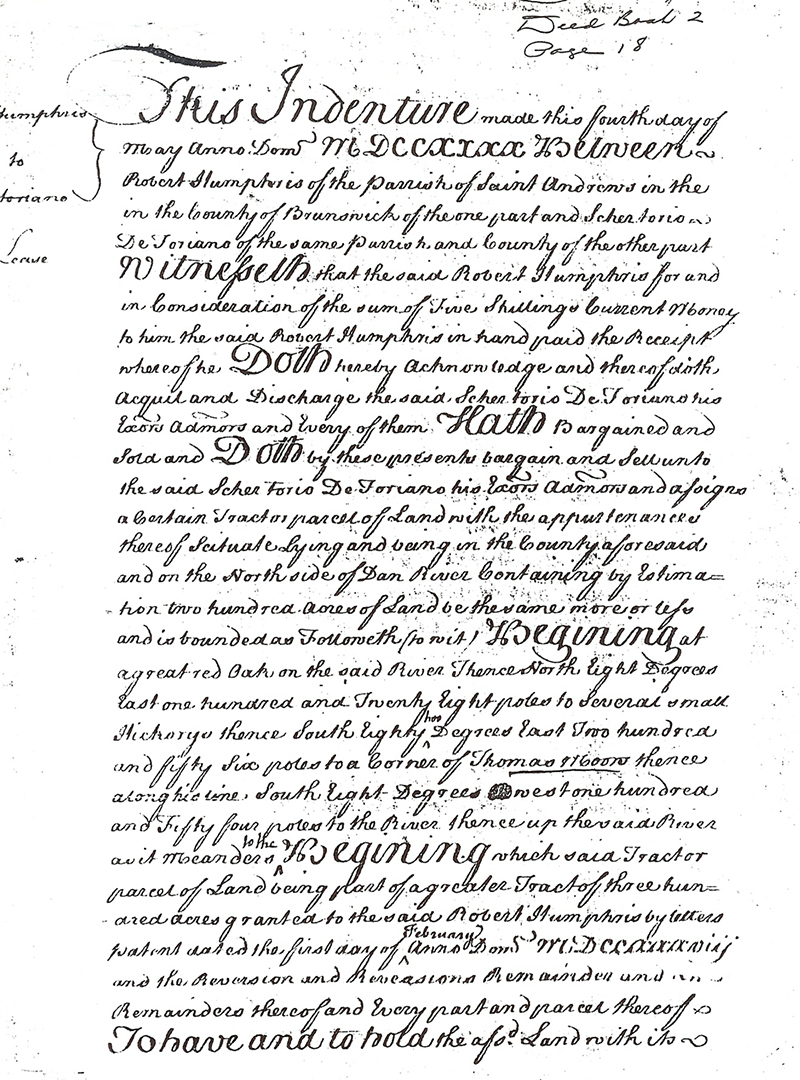 Deed Book 2
Page 18
Humphris
to
toriano
Lease
This Indenture made this fourth day of
May Anno: Dom MDCCXXXX Between
Robert Humphris of the Parrish of Saint Andrews in the
in the County of Brunswick of the one part and Scher torio
De Toriano of the same Parrish and County of the other part
Witnesseth that the said Robert Humphris for and
in Consideration of the sum of Five Shillings Current Money
to him the said Robert Humphris in hand paid the Receipt
whereof he Doth hereby Acknowledge and thereof doth
Acquit and Discharge the said Scher torio De Toriano his
Exors Admors and Every of them Hath Bargained and
Sold and Doth by these presents bargain and Sell unto
the said Scher torio De Toriano his Exors Admors and assigns
a Certain Tract or parcel of Land with the appurtenances
thereof Scituate Lying and being in the County aforesaid
and on the North side of Dan River Containing by Estima=
tion two hundred Acres of Land be the same more or less
and is bounded as Followeth (to wit) Begining at
a great red Oak on the said River Thence North Eight Degrees
East one hundred and Twenty Eight poles to Several small
Hickorys thence South Eighty two Degrees East Two hundred
and fifty Six poles to a Corner of Thomas Moors thence
along his line, South Eight Degrees west one hundred
and Fifty four poles to the River thence up the said River
as it Meanders to the Begining which said Tract or
parcel of Land being part of a greater Tract of three hun=
dred acres granted to the said Robert Humphris by letters
patent dated the first day of February Anno Dom MDCCXXXViij
and the Reversion and Revercsions Remainder and
Remainders thereof and Every part and parcel thereof
To have and to hold the afsd Land with its